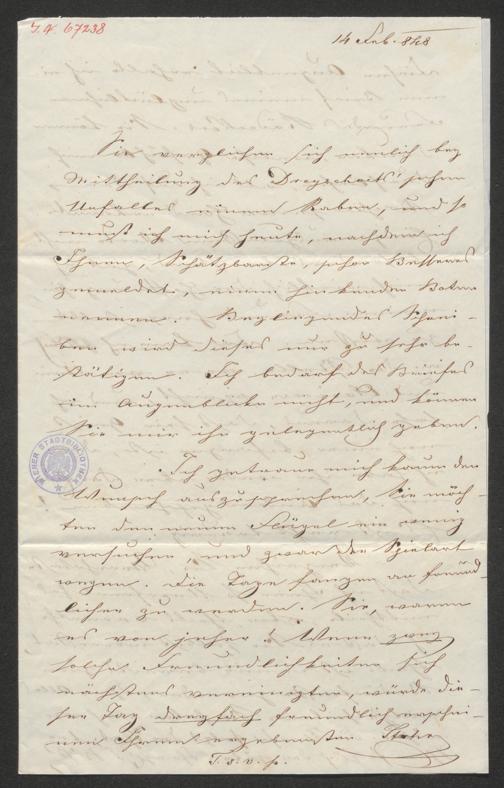 I.N. 67238
14 Feb. 848
Sie verglichen sich neulich bey
Mittheilung des Dreyschock'schen
Unfalles einem Raben, und so
muß ich mich heute, nachdem ich
Ihnen, Schätzbarste, schon Besseres
gemeldet, einen hinkenden Boten
nennen. Beyliegendes Schrei-
ben wird dieses nur zu sehr be-
stätigen. Ich bedarf des Briefes
im Augenblicke nicht, und können
Sie mir ihn gelegentlich geben.
Ich getraue mich kaum den
Wunsch auszusprechen, Sie möch-
ten den neuen Flügel ein wenig
versuchen, und zwar der Spielart
wegen. Die Tage fangen an freund-
licher zu werden. Sie, waren
es von jeher! Wenn zwey
solche Freundlichkeiten sich
nächstens vereinigten, würde die-
ser Tag dreyfach freundlich erschei-
nen Ihrem ergebensten
T. s. v. p.
WIENER STADTBIBLIOTHEK